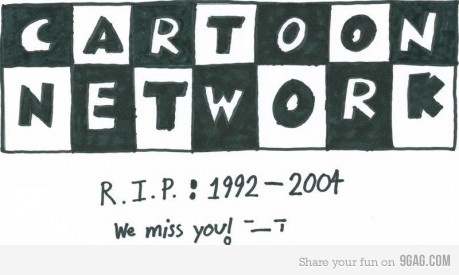 CARTOON
NETWORK
R.I.P. : 1992-2004
We miss you! T_T
Share your fun on 9GAG.COM